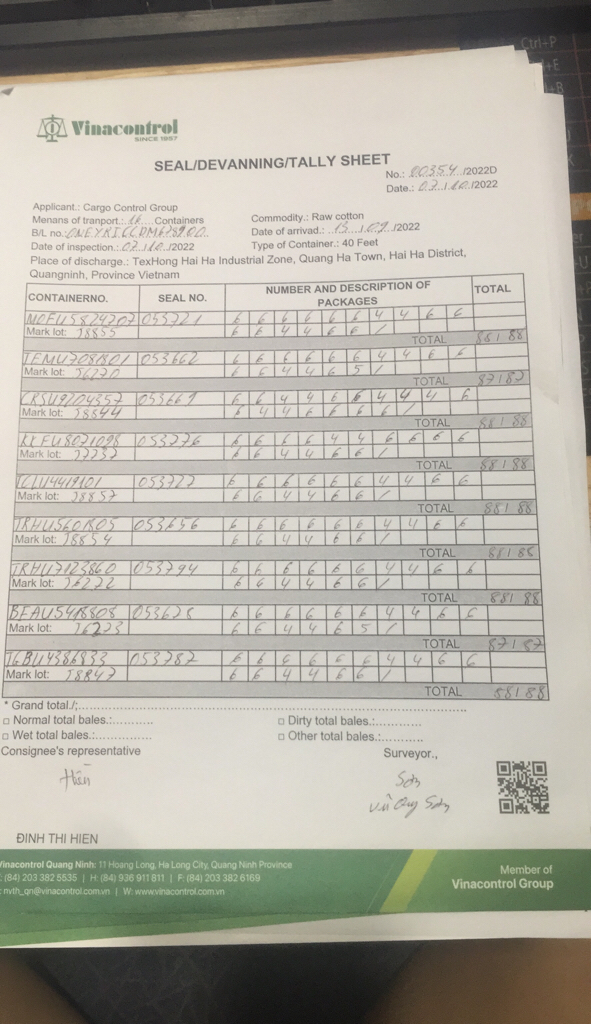 Ctrl+P
Vinacontrol
SINCE 1957
SEAL/DEVANNING/TALLY SHEET
No.: 00354 /2022D
Date.: 07 / 10 /2022
Applicant.: Cargo Control Group
Menans of tranport.: Containers
Commodity.: Raw cotton
B/L no.:
Date of arrivad.: 13 / 09 /2022
Date of inspection.: 07 / 10 /2022
Type of Container.: 40 Feet
Place of discharge.: TexHong Hai Ha Industrial Zone, Quang Ha Town, Hai Ha District,
Quangninh, Province Vietnam
CONTAINERNO. SEAL NO. NUMBER AND DESCRIPTION OF PACKAGES TOTAL
053721 6 6 6 6 6 6 4 4 6 6
Mark lot: 38855 6 6 4 4 6 6 /
TOTAL 88 / 88
053662 6 6 6 6 6 6 4 4 6 6
Mark lot: 36220 6 6 4 4 6 5 /
TOTAL 87 / 87
053669 6 6 4 4 6 6 4 4 4 6
Mark lot: 38844 6 4 4 6 6 6 /
TOTAL 88 / 88
053776 6 6 6 6 4 4 6 6 6 6
Mark lot: 6 6 4 4 6 6 /
TOTAL 88 / 88
6 6 6 6 6 6 4 4 6 6
Mark lot: 38857 6 6 4 4 6 6 /
TOTAL 88 / 88
TRHU5601805 053656 6 6 6 6 6 6 4 4 6 6
Mark lot: 38854 6 6 4 4 6 6 /
TOTAL 88 / 88
TRHU7123860 053794 6 6 6 6 6 6 4 4 6 6
Mark lot: 36222 6 6 4 4 6 6 /
TOTAL 88 / 88
BEAU5418808 053628 6 6 6 6 6 6 4 4 6 6
Mark lot: 36223 6 6 4 4 6 5 /
TOTAL 87 / 87
053782 6 6 6 6 6 6 4 4 6 6
Mark lot: 38847 6 6 4 4 6 6 /
TOTAL 88 / 88
* Grand total./;
□ Normal total bales.:
□ Dirty total bales.:
□ Wet total bales.:
□ Other total bales.:
Consignee's representative
Surveyor.,
Hiền
Sơn
Vũ Sơn
ĐINH THI HIEN
Vinacontrol Quang Ninh: 11 Hoang Long, Ha Long City, Quang Ninh Province
(84) 203 382 5535 | H: (84) 936 911 811 | F: (84) 203 382 6169
nvth_qn@vinacontrol.com.vn | W: www.vinacontrol.com.vn
Member of
Vinacontrol Group